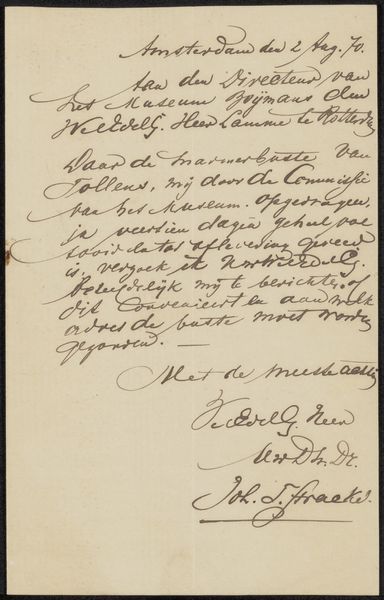 Amsterdam den 2 Aug. 70.
Aan den Directeur van
het Museum Boijmans den
WelEdelG. Heer Lamme te Rotterdam
Daar de marmerbuste van
Tollens, mij door de Commissie
van het Museum opgedragen,
in veertien dagen geheel
tot aflevering gereed
is, verzoek ik UwWelEdelG.
beleefdelijk mij te berichten, of
dit convenieert en aan welk
adres de buste moet worden
gezonden. —
Met de meeste achting
WelEdelG. Heer
Uw Dw. Dr.
Joh. T. Stracké.